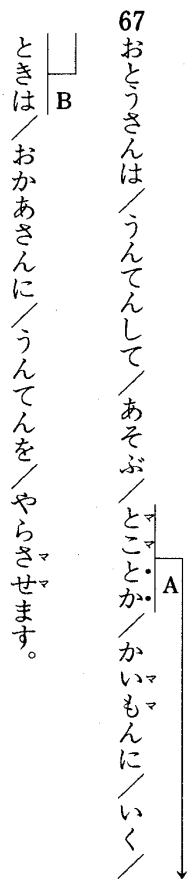 67 おとうさんは／うんてんして／あそぶ／とこと​か／かいもんに／いく／
ママ
ママ
A
ときは／おかあさんに／うんてんを／やらさせます。
ママ
B